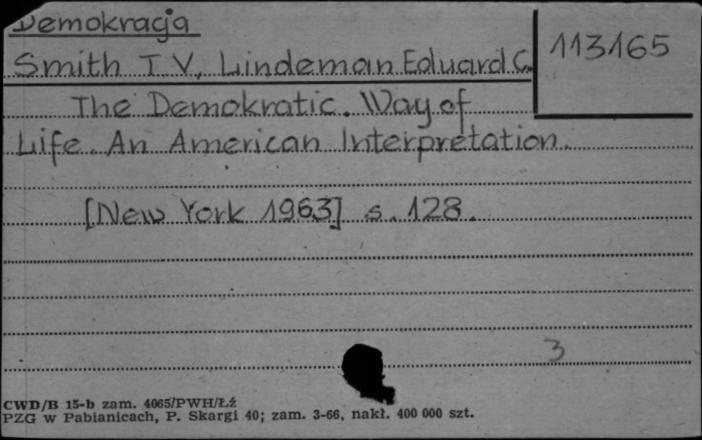 Demokracja
Smith T. V., Lindeman Eduard C.
113165
The Demokratic. Way of
Life. An American Interpretation.
[New York 1963] s. 128.
3
CWD/B 15-b zam. 4065/PWH/Łź
PZG w Pabianicach, P. Skargi 40; zam. 3-66, nakł. 400 000 szt.